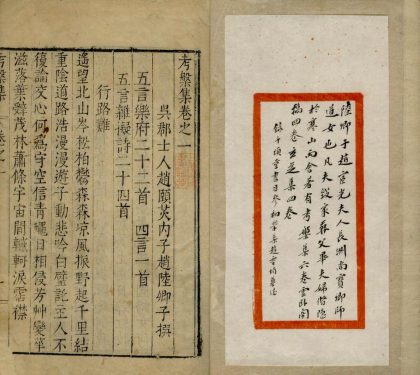 陸卿子趙宦光夫人長洲尚寶卿師
道女也凡夫家葬父卒夫婦偕隱
於寒山而舍著有考槃集六卷雲卧閣
稿四卷玄芝集四卷
錄千頃堂書目參初學集趙靈均墓志
考槃集卷之一
吳郡士人趙頤英内子趙陸卿子撰
五言樂府二十二首 四言一首
五言雜擬詩二十四首
行路難
遙望北山岑松柏欝森森凉風振野起千里結
重陰道路浩漫漫遊子動悲吟白璧託王人不
復論文心何爲守空信青蠅日相侵芳艸變華
滋落葉辭茂林蕭條宇宙間轗軻淚霑襟
考槃集 卷之一